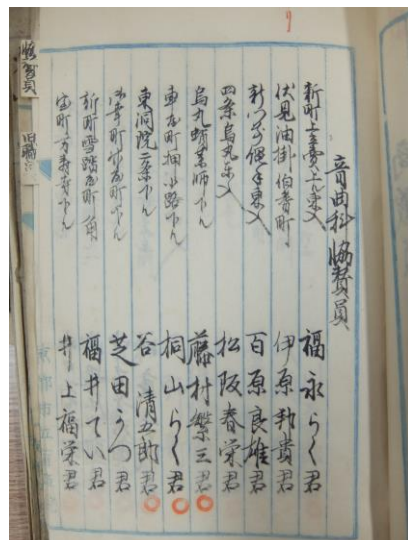 音曲科協賛員
福永らく君
伏見油掛伯耆町
伊原邦貴君
百原良雄君
四条烏丸東入
松阪春栄君
烏丸蛸薬師下ル
藤村繁三君
車屋町押小路下ル
桐山らく君
東洞院二条下ル
谷清五郎君
芝田うつ君
新町雪踏屋町角
福井てい君
室町万寿寺下ル
井上福栄君
協賛員